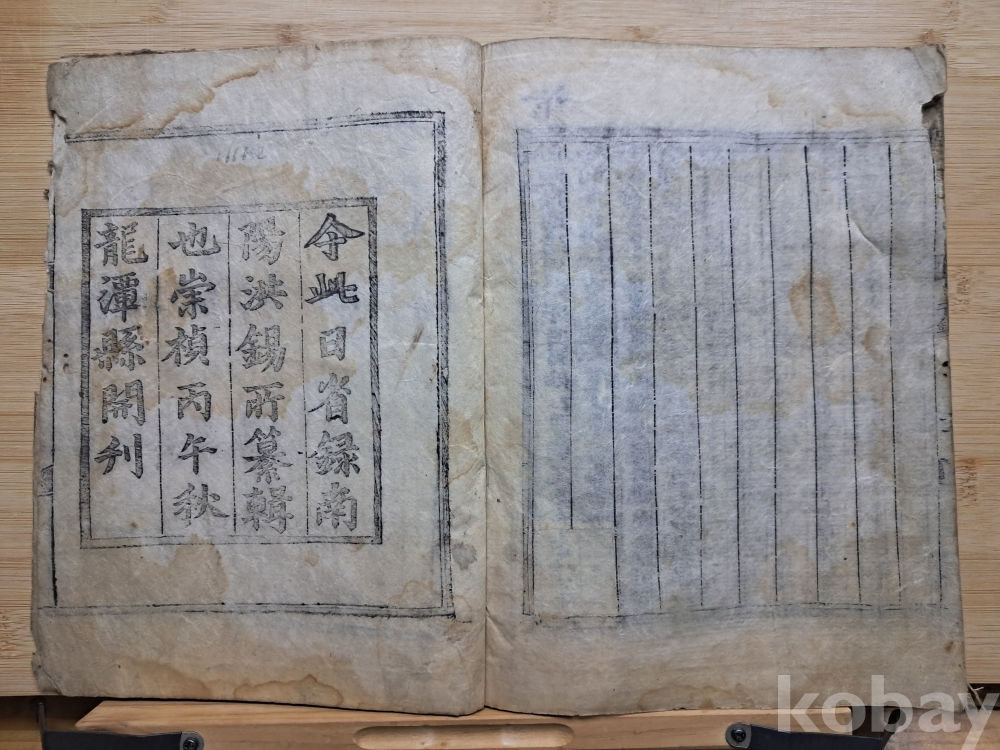 今此日省録南
陽洪錫所纂輯
也崇禎丙午秋
龍潭縣開刋
kobay